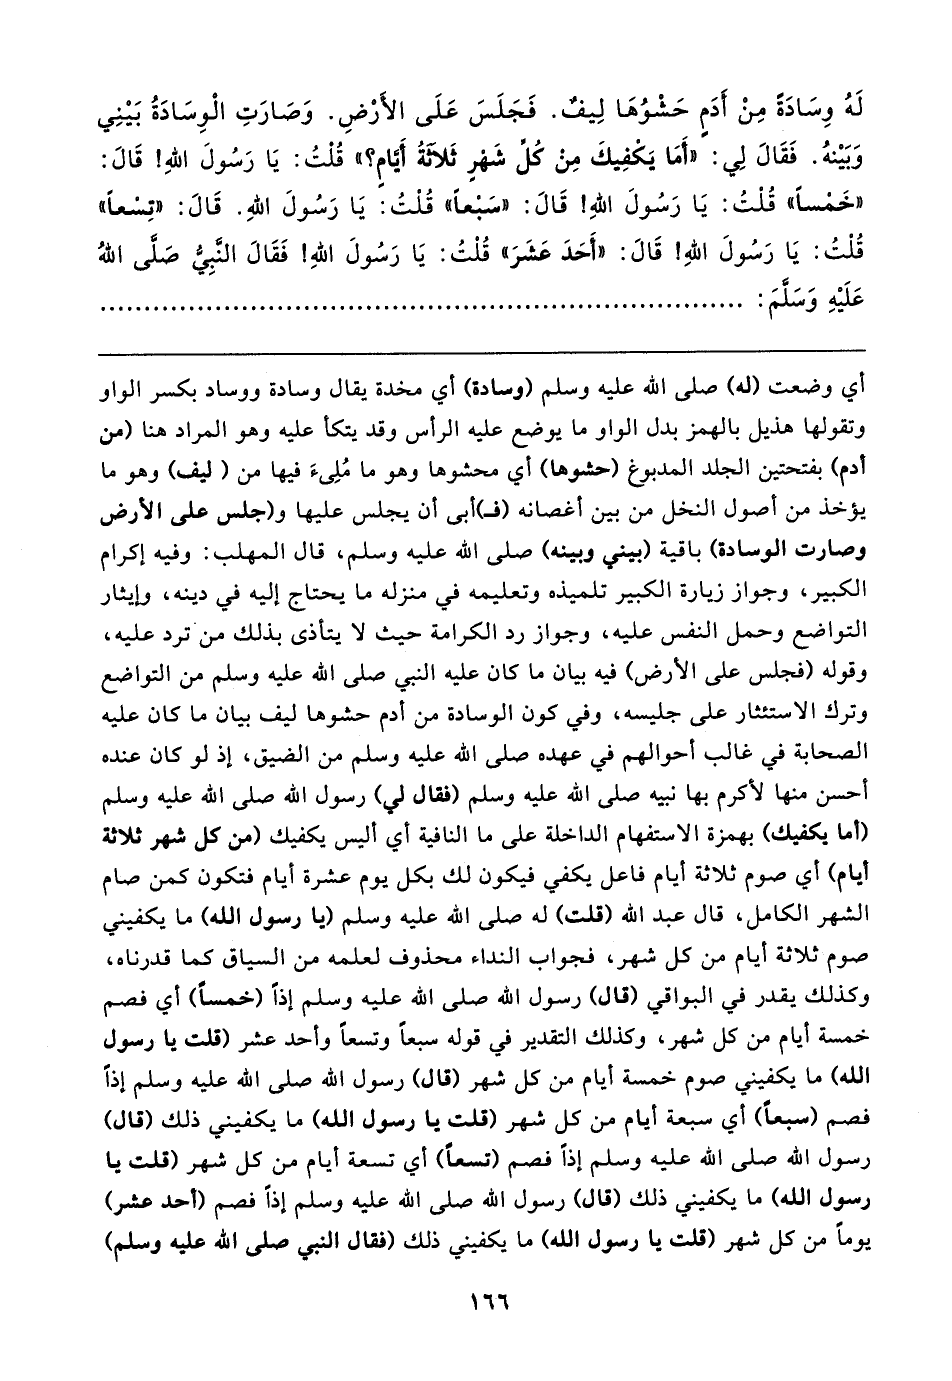 لَهُ وِسَادَةً مِنْ أَدَمٍ حَشْوُهَا لِيفٌ. فَجَلَسَ عَلَى الأَرْضِ. وَصَارَتِ الْوِسَادَةُ بَيْنِي
وَبَيْنَهُ. فَقَالَ لِي: «أَمَا يَكْفِيكَ مِنْ كُلِّ شَهْرٍ ثَلاَثَةُ أَيَّامٍ؟» قُلْتُ: يَا رَسُولَ اللهِ! قَالَ:
«خَمْساً» قُلْتُ: يَا رَسُولَ اللهِ! قَالَ: «سَبْعاً» قُلْتُ: يَا رَسُولَ اللهِ. قَالَ: «تِسْعاً»
قُلْتُ: يَا رَسُولَ اللهِ! قَالَ: «أَحَدَ عَشَرَ» قُلْتُ: يَا رَسُولَ اللهِ! فَقَالَ النَّبِيُّ صَلَّى اللهُ
عَلَيْهِ وَسَلَّمَ: ........................................................................
أي وضعت (له) صلى الله عليه وسلم (وسادة) أي مخدة يقال وسادة ووساد بكسر الواو
وتقولها هذيل بالهمز بدل الواو ما يوضع عليه الرأس وقد يتكأ عليه وهو المراد هنا (من
أدم) بفتحتين الجلد المدبوغ (حشوها) أي محشوها وهو ما مُلِىءَ فيها من ( ليف) وهو ما
يؤخذ من أصول النخل من بين أغصانه (فـ)أبى أن يجلس عليها و(جلس على الأرض
وصارت الوسادة) باقية (بيني وبينه) صلى الله عليه وسلم، قال المهلب: وفيه إكرام
الكبير، وجواز زيارة الكبير تلميذه وتعليمه في منزله ما يحتاج إليه في دينه، وإيثار
التواضع وحمل النفس عليه، وجواز رد الكرامة حيث لا يتأذى بذلك من ترد عليه،
وقوله (فجلس على الأرض) فيه بيان ما كان عليه النبي صلى الله عليه وسلم من التواضع
وترك الاستئثار على جليسه، وفي كون الوسادة من أدم حشوها ليف بيان ما كان عليه
الصحابة في غالب أحوالهم في عهده صلى الله عليه وسلم من الضيق، إذ لو كان عنده
أحسن منها لأكرم بها نبيه صلى الله عليه وسلم (فقال لي) رسول الله صلى الله عليه وسلم
(أما يكفيك) بهمزة الاستفهام الداخلة على ما النافية أي أليس يكفيك (من كل شهر ثلاثة
أيام) أي صوم ثلاثة أيام فاعل يكفي فيكون لك بكل يوم عشرة أيام فتكون كمن صام
الشهر الكامل، قال عبد الله (قلت) له صلى الله عليه وسلم (يا رسول الله) ما يكفيني
صوم ثلاثة أيام من كل شهر، فجواب النداء محذوف لعلمه من السياق كما قدرناه،
وكذلك يقدر في البواقي (قال) رسول الله صلى الله عليه وسلم إذاً (خمساً) أي فصم
خمسة أيام من كل شهر، وكذلك التقدير في قوله سبعاً وتسعاً وأحد عشر (قلت يا رسول
الله) ما يكفيني صوم خمسة أيام من كل شهر (قال) رسول الله صلى الله عليه وسلم إذاً
فصم (سبعاً) أي سبعة أيام من كل شهر (قلت يا رسول الله) ما يكفيني ذلك (قال)
رسول الله صلى الله عليه وسلم إذاً فصم (تسعاً) أي تسعة أيام من كل شهر (قلت يا
رسول الله) ما يكفيني ذلك (قال) رسول الله صلى الله عليه وسلم إذاً فصم (أحد عشر)
يوماً من كل شهر (قلت يا رسول الله) ما يكفيني ذلك (فقال النبي صلى الله عليه وسلم)
١٦٦